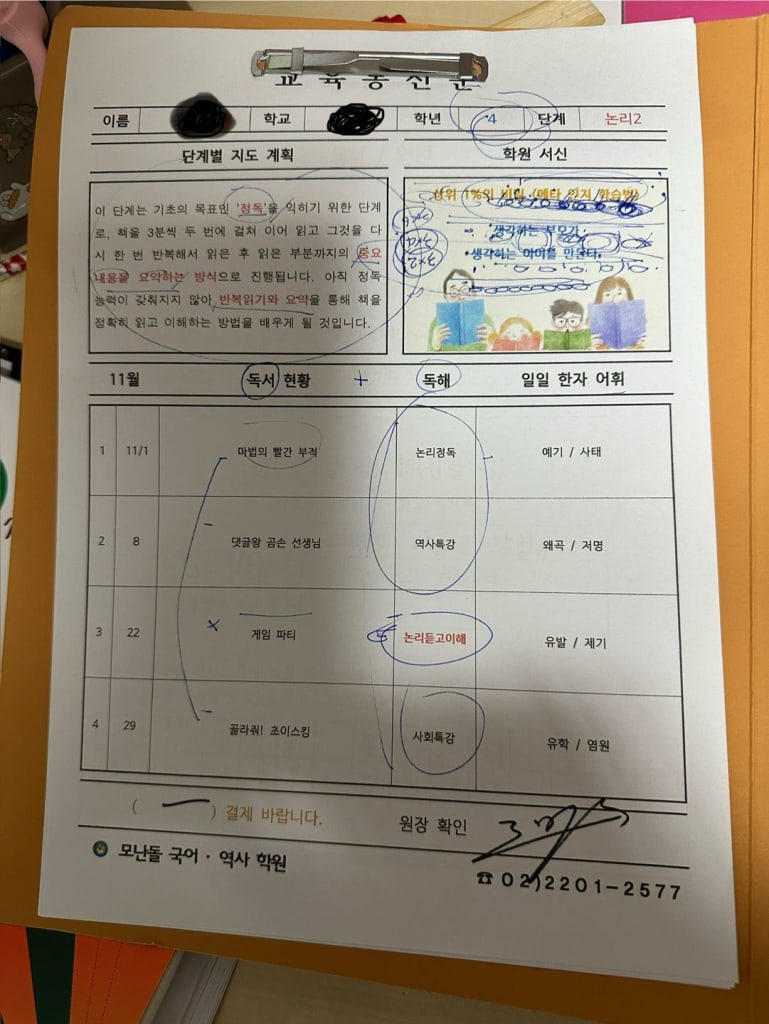 교육통신문
이름 학교 학년 4 단계 논리2
단계별 지도 계획 학원 서신
이 단계는 기초의 목표인 '정독'을 익히기 위한 단계
로, 책을 3분씩 두 번에 걸쳐 이어 읽고 그것을 다
시 한 번 반복해서 읽은 후 읽은 부분까지의 중요
내용을 요약하는 방식으로 진행됩니다. 아직 정독
능력이 갖춰지지 않아 반복읽기와 요약을 통해 책을
정확히 읽고 이해하는 방법을 배우게 될 것입니다.
상위 1%의 비밀 (메타 인지 학습법)
생각하는 부모가
생각하는 아이를 만든다.
11월 독서 현황 + 독해 일일 한자 어휘
1 11/1 마법의 빨간 부적 논리정독 예기 / 사태
2 8 댓글왕 곰손 선생님 역사특강 왜곡 / 저명
3 22 게임 파티 논리듣고이해 유발 / 제기
4 29 골라줘! 초이스킹 사회특강 유학 / 염원
( ) 결제 바랍니다. 원장 확인
모난돌 국어 · 역사 학원
☎ 02)2201-2577